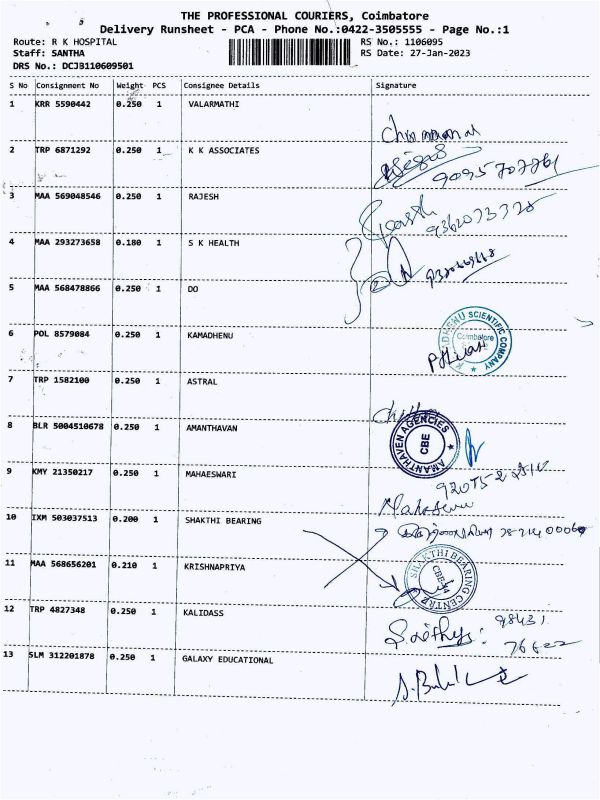 THE PROFESSIONAL COURIERS, Coimbatore
Delivery Runsheet - PCA - Phone No.:0422-3505555 - Page No.:1
Route: R K HOSPITAL
Staff: SANTHA
DRS No.: DCJB110609501
RS No.: 1106095
RS Date: 27-Jan-2023
S No Consignment No Weight PCS Consignee Details Signature
1 KRR 5590442 0.250 1 VALARMATHI
2 TRP 6871292 0.250 1 K K ASSOCIATES
3 MAA 569048546 0.250 1 RAJESH
4 MAA 293273658 0.180 1 S K HEALTH
5 MAA 568478866 0.250 1 DO
6 POL 8579084 0.250 1 KAMADHENU
SCIENTIFIC COMPANY
Coimbatore
7 TRP 1582100 0.250 1 ASTRAL
8 BLR 5004510678 0.250 1 AMANTHAVAN
AMANTHAVEN AGENCIES
CBE
9 KMY 21350217 0.250 1 MAHAESWARI
10 IXM 503037513 0.200 1 SHAKTHI BEARING
11 MAA 568656201 0.210 1 KRISHNAPRIYA
SHAKTHI BEARING CENTRE
12 TRP 4827348 0.250 1 KALIDASS
98431
13 SLM 312201878 0.250 1 GALAXY EDUCATIONAL